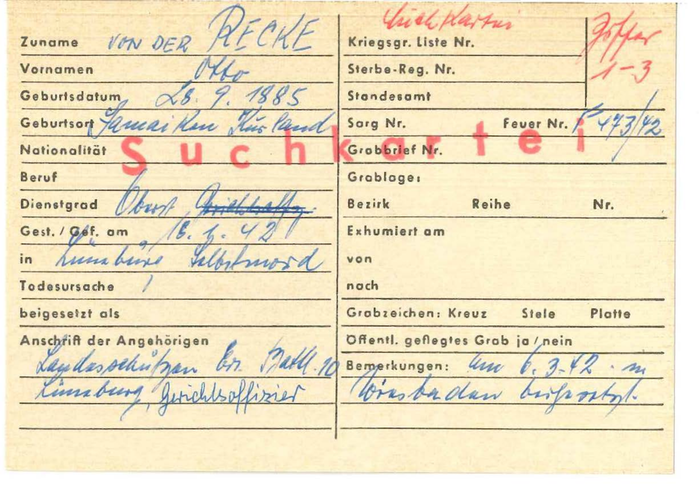 Zuname VON DER RECKE
Vornamen Otto
Geburtsdatum 28. 9. 1885
Geburtsort Kurland
Nationalität
Beruf
Dienstgrad Oberst
Gest. / Gef. am 42
in Lüneburg Selbstmord
Todesursache
beigesetzt als
Anschrift der Angehörigen
Landesschützen Ers. Batl. 10
Lüneburg, Gerichtsoffizier
Suchkartei
Suchkartei
1-3
Kriegsgr. Liste Nr.
Sterbe-Reg. Nr.
Standesamt
Sarg Nr. Feuer Nr. F 473/42
Grabbrief Nr.
Grablage:
Bezirk Reihe Nr.
Exhumiert am
von
nach
Grabzeichen: Kreuz Stele Platte
Öffentl. gepflegtes Grab ja / nein
Bemerkungen: am 6.3.42 in
Wiesbaden beigesetzt.